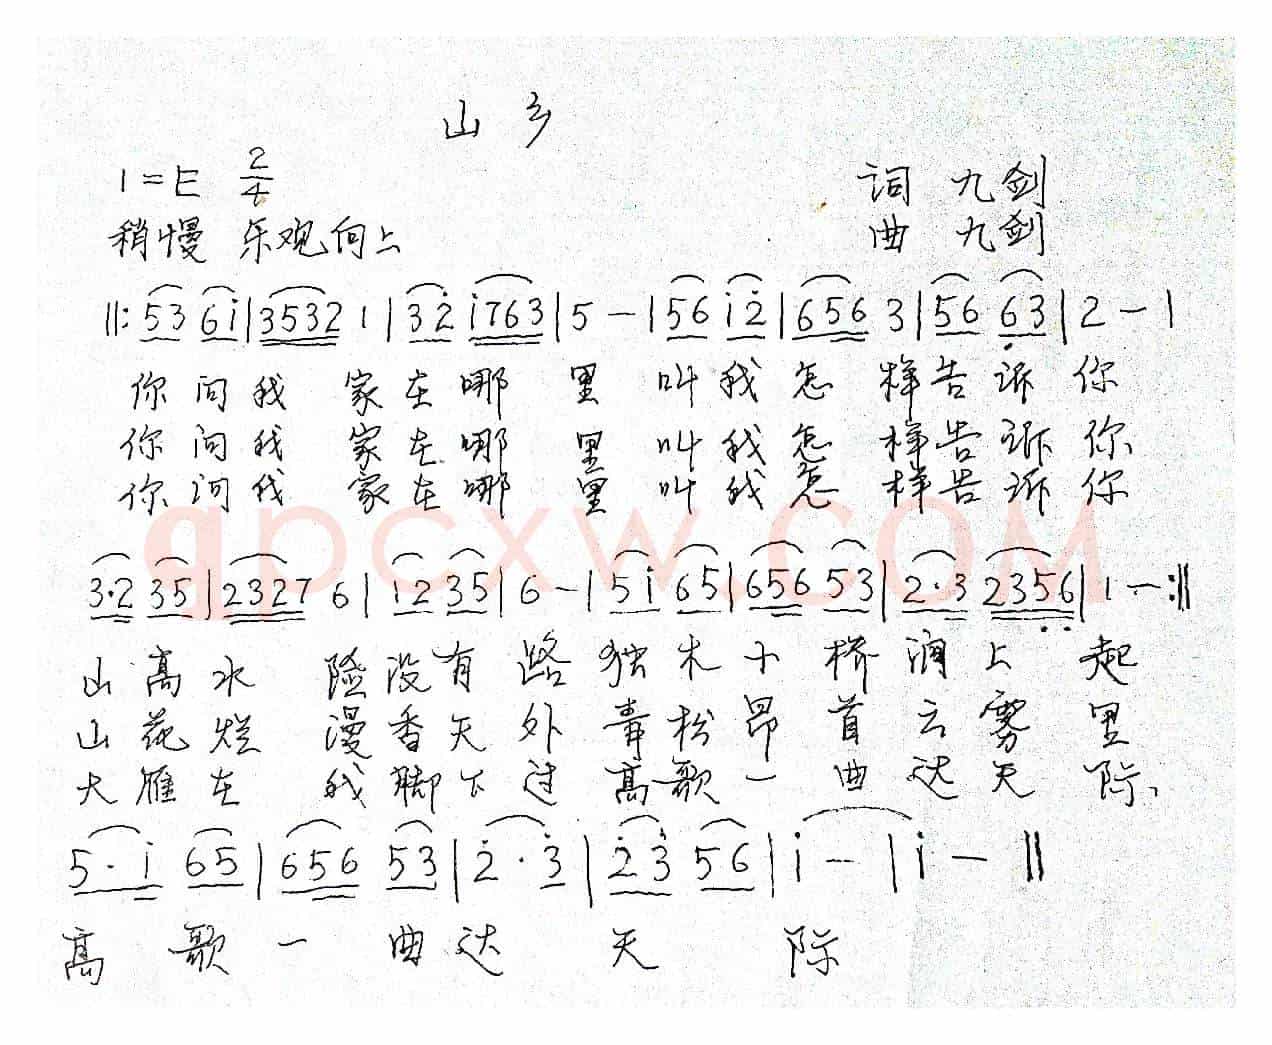 山乡
1=E 2/4
词 九剑
稍慢 乐观向上
曲 九剑
‖: 53 6i | 3532 1 | 32̇ i763 | 5 — | 56 i2̇ | 656 3 | 56 6̣3 | 2 — |
你问我 家在哪 里 叫我怎 样告诉 你
你问我 家在哪 里 叫我怎 样告诉 你
你问我 家在哪 里 叫我怎 样告诉 你
gpcxw.com
3·2 35 | 2327 6 | 12 35 | 6 — | 5i 65 | 656 53 | 2·3 235̣6̣ | 1 — :‖
山高水 险没有 路 独木小 桥涧上 起
山花烂 漫香天 外 青松昂 首云雾 里
大雁在 我脚下 过 高歌一 曲达天 际、
5·i 65 | 656 53 | 2̇·3̇ | 2̇3̇ 56 | i — | i — ‖
高 歌一 曲达 天 际